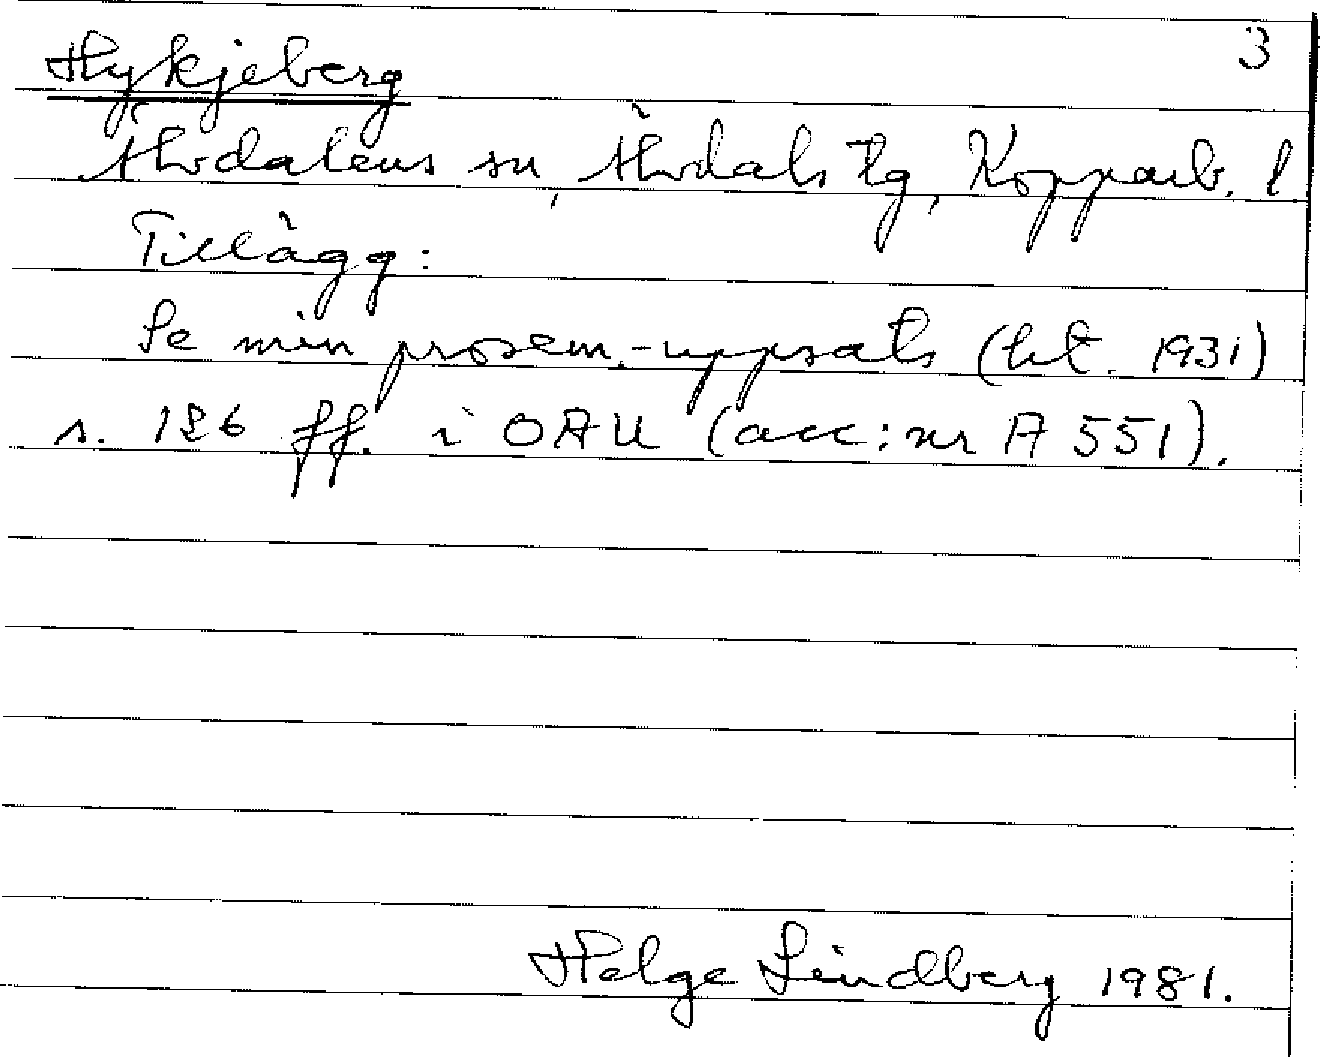 Hykjeberg 3
Älvdalens sn, Älvdals tg, Kopparb. l
Tillägg:
Se min prosem.-uppsats (ht. 1931)
s. 126 ff. i OAU (acc:nr A 551).
Helge Lindberg 1981.